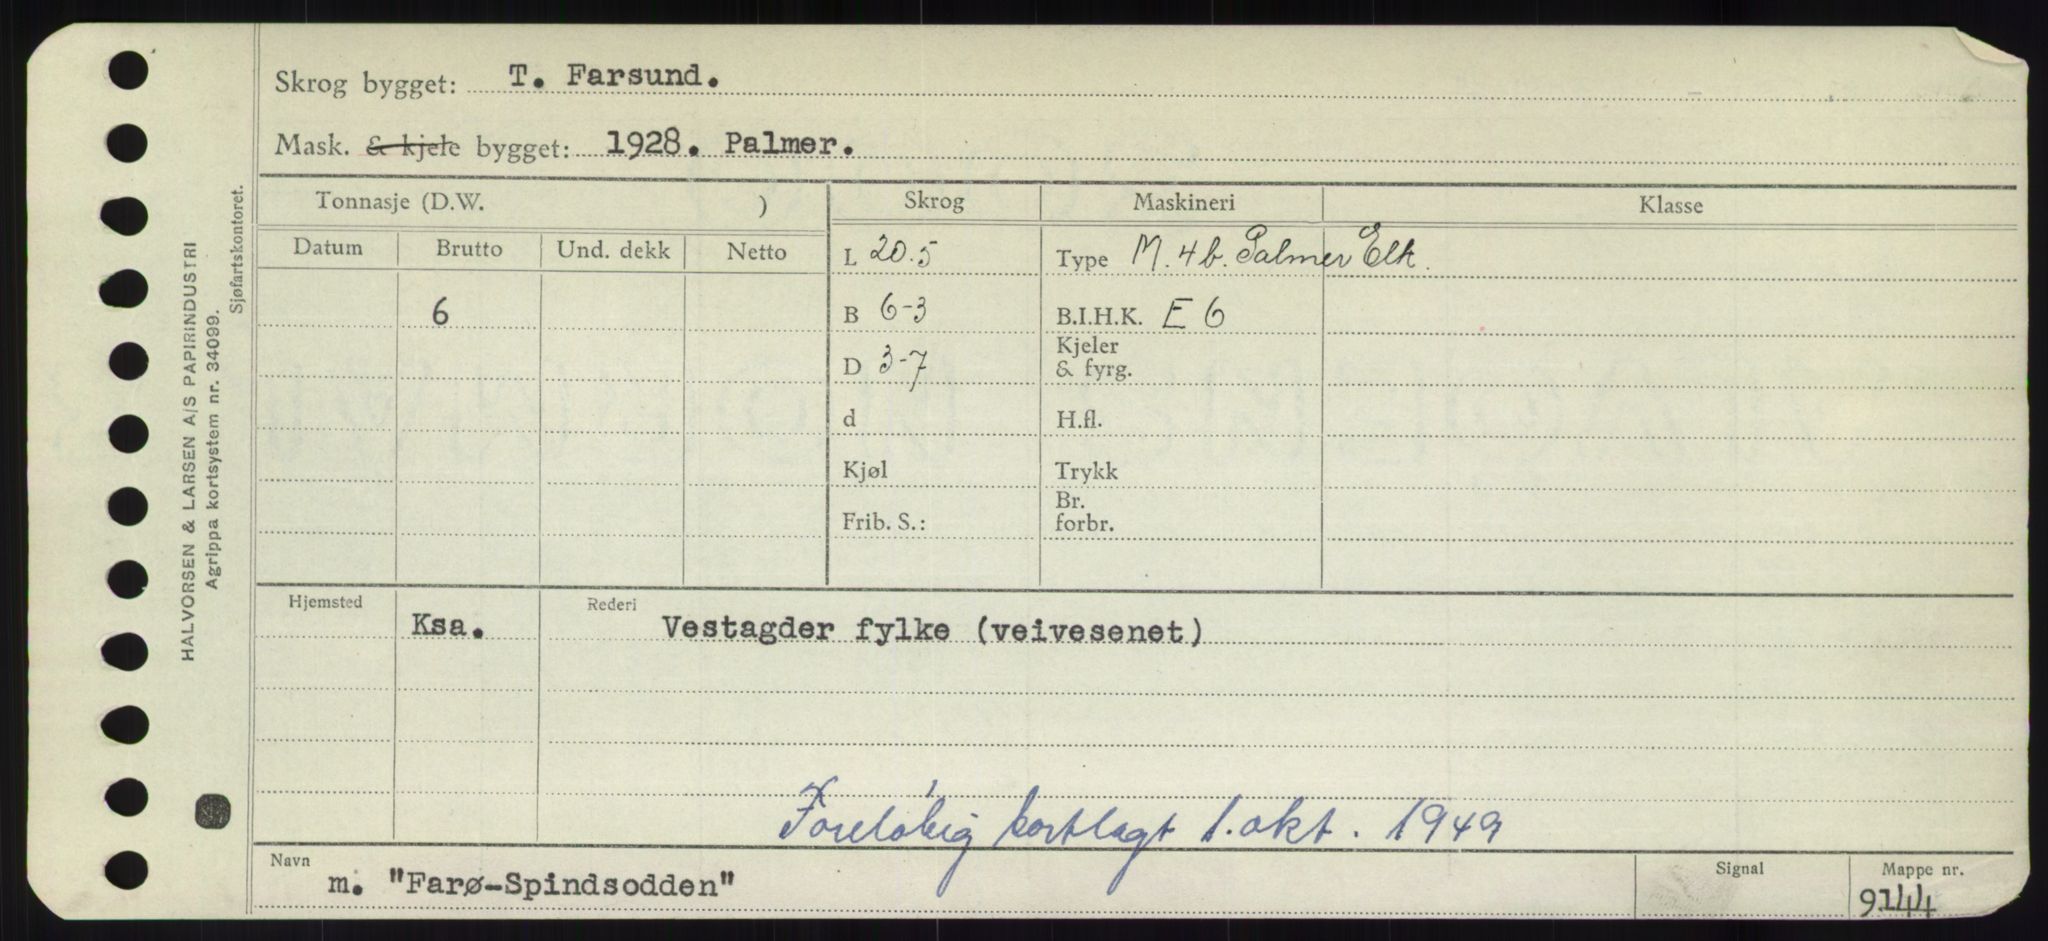 Skrog bygget: T. Farsund.
Mask. & kjele bygget: 1928. Palmer.
Tonnasje (D.W. ) Skrog Maskineri Klasse
Datum Brutto Und. dekk Netto
L 20.5 Type M. 4 b. Palmer Elk.
6 B 6-3 B.I.H.K. E 6
D 3-7 Kjeler & fyrg.
d H.fl.
Kjøl Trykk
Frib. S.: Br. forbr.
Hjemsted Ksa. Rederi Vestagder fylke (veivesenet)
Foreløbig kortlagt 1. okt. 1949
Navn Signal Mappe nr.
m. "Farø-Spindsodden" 9144
HALVORSEN & LARSEN A/S PAPIRINDUSTRI
Agrippa kortsystem nr. 34099.
Sjøfartskontoret.